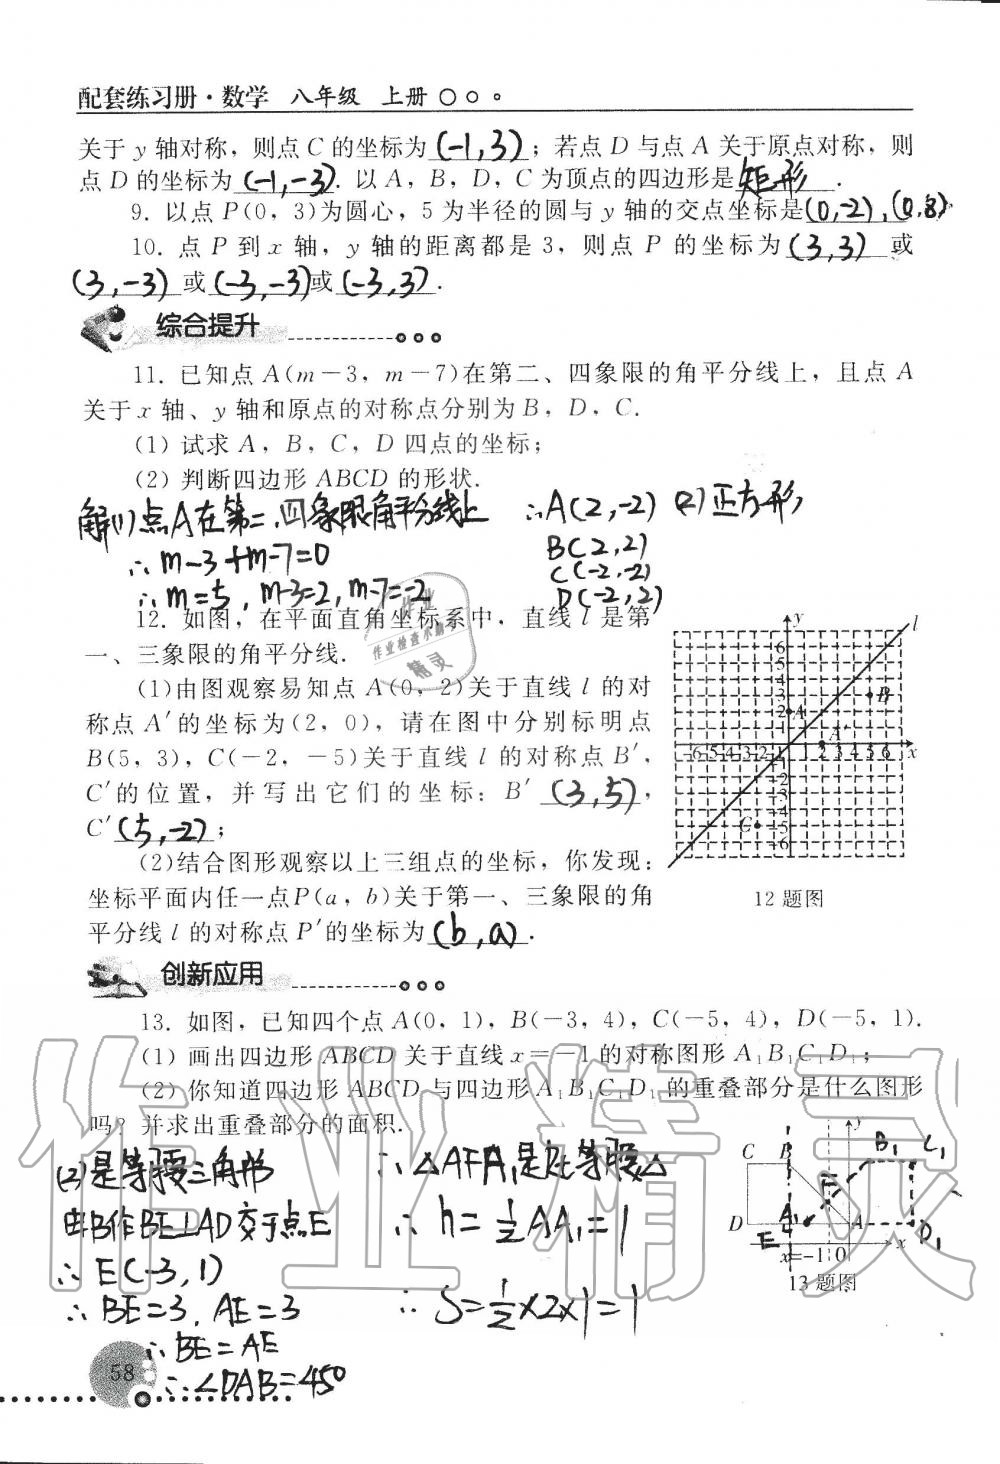 配套练习册·数学 八年级 上册
关于 y 轴对称，则点 C 的坐标为 (-1,3)；若点 D 与点 A 关于原点对称，则
点 D 的坐标为 (-1,-3). 以 A，B，D，C 为顶点的四边形是 矩形.
9. 以点 P(0，3)为圆心，5 为半径的圆与 y 轴的交点坐标是(0,-2),(0,8).
10. 点 P 到 x 轴，y 轴的距离都是 3，则点 P 的坐标为 (3,3) 或
(3,-3) 或 (-3,-3) 或 (-3,3).
综合提升
11. 已知点 A(m－3，m－7)在第二、四象限的角平分线上，且点 A
关于 x 轴、y 轴和原点的对称点分别为 B，D，C.
(1) 试求 A，B，C，D 四点的坐标；
(2) 判断四边形 ABCD 的形状.
解(1)点A在第二、四象限角平分线上 ∴A(2,-2) (2)正方形
∴m-3+m-7=0 B(2,2)
C(-2,-2)
∴m=5, m-3=2, m-7=-2 D(-2,2)
12. 如图，在平面直角坐标系中，直线 l 是第
一、三象限的角平分线.
(1)由图观察易知点 A(0，2)关于直线 l 的对
称点 A′的坐标为(2，0)，请在图中分别标明点
B(5，3)，C(－2，－5)关于直线 l 的对称点 B′，
C′的位置，并写出它们的坐标：B′ (3,5)，
C′(5,-2)；
(2)结合图形观察以上三组点的坐标，你发现：
坐标平面内任一点P(a，b)关于第一、三象限的角
平分线 l 的对称点 P′的坐标为 (b,a).
12 题图
创新应用
13. 如图，已知四个点 A(0，1)，B(－3，4)，C(－5，4)，D(－5，1).
(1) 画出四边形 ABCD 关于直线 x＝－1 的对称图形 A₁B₁C₁D₁；
(2) 你知道四边形 ABCD 与四边形 A₁B₁C₁D₁ 的重叠部分是什么图形
吗？并求出重叠部分的面积.
(2)是等腰三角形 ∴△AFA₁是等腰△
由B作BE⊥AD交于点E ∴h=½AA₁=1
∴E(-3,1)
∴BE=3, AE=3 ∴S=½×2×1=1
∴BE=AE
∴∠DAB=45°
C B y B₁ C₁
F
D E A₁ A D₁
x=-1 O x
13 题图
58
作业精灵